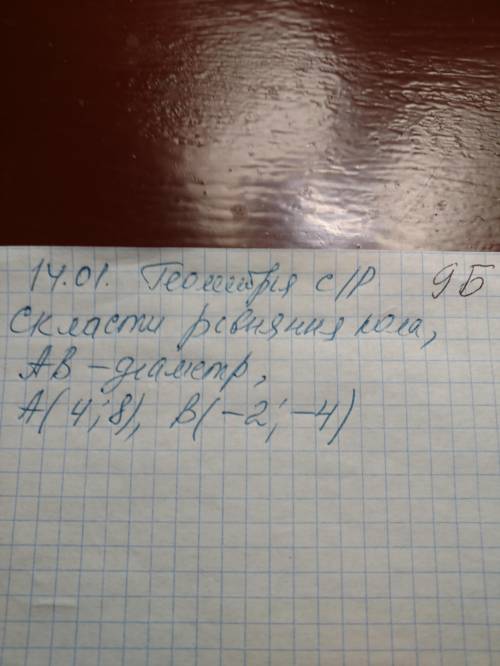 14.01. Геометрія с/р 9Б
Скласти рівняння кола,
АВ – діаметр,
А(4;8), В(-2;-4)